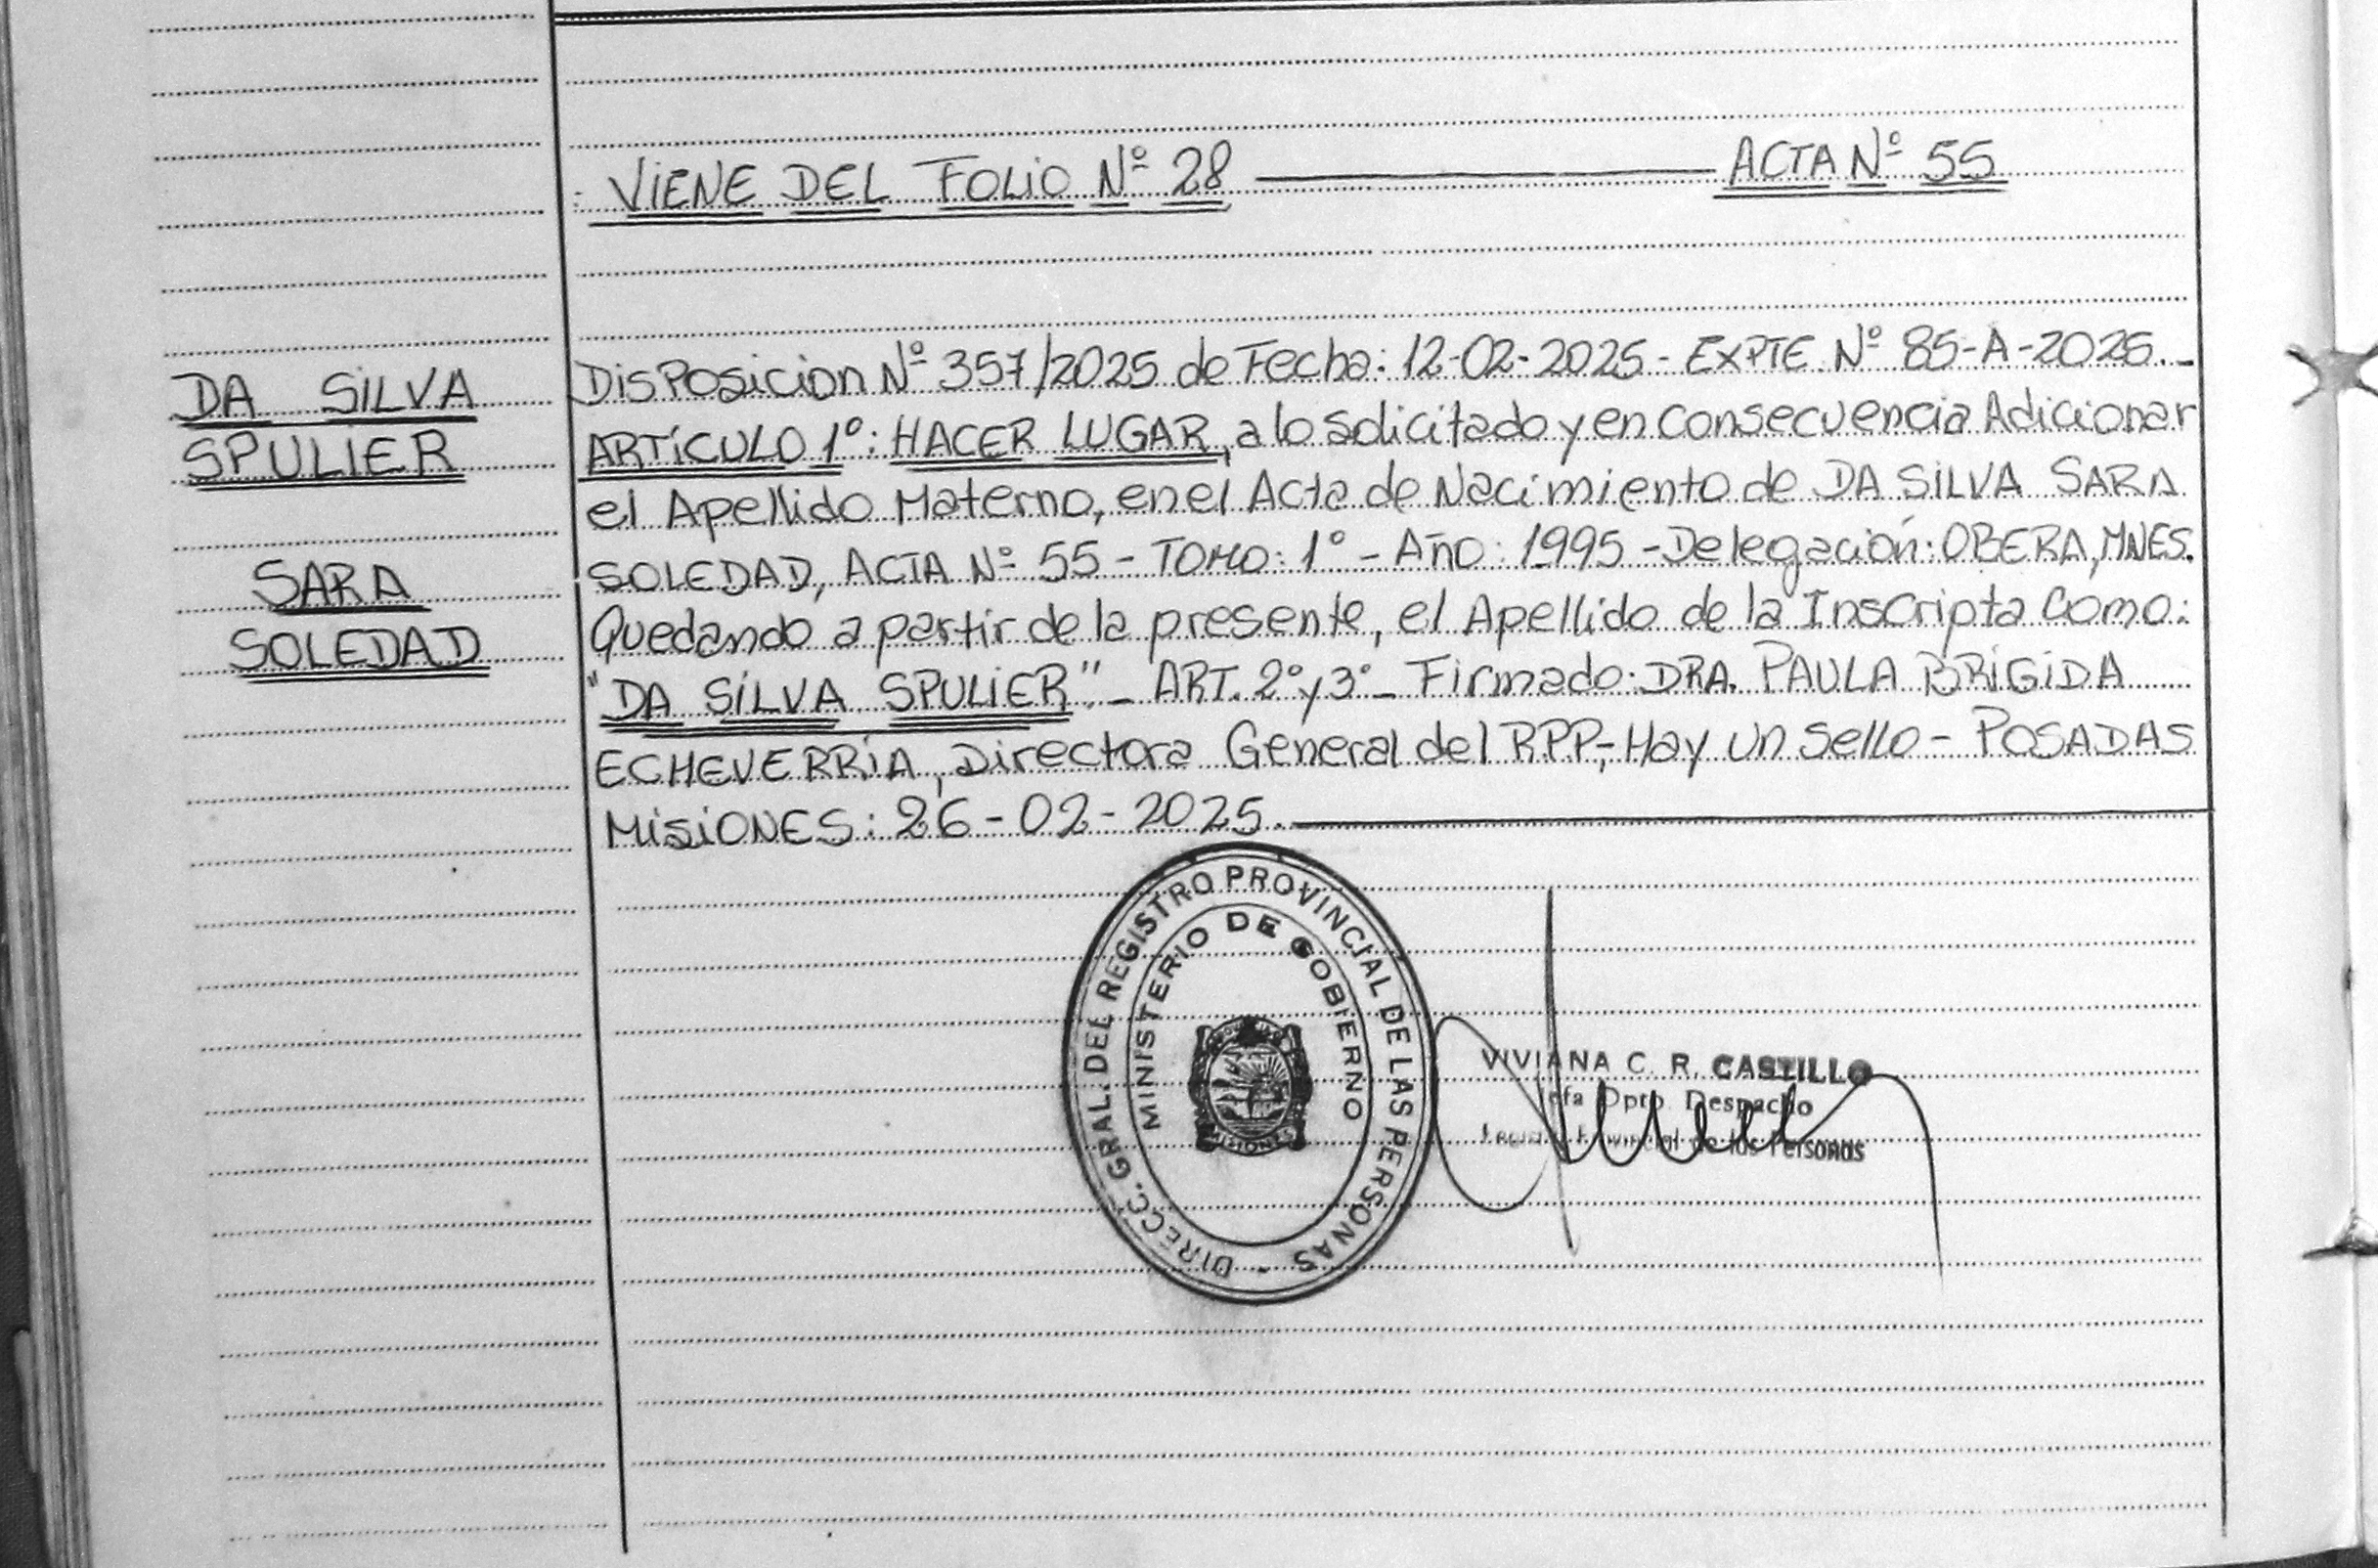 VIENE DEL FOLIO Nº 28 ACTA Nº 55
DA SILVA
SPULIER
SARA
SOLEDAD
DISPOSICION Nº 357/2025 de Fecha: 12-02-2025- EXPTE Nº 85-A-2025.-
ARTÍCULO 1º: HACER LUGAR, a lo solicitado y en consecuencia Adicionar
el Apellido Materno, en el Acta de Nacimiento de DA SILVA SARA
SOLEDAD, ACTA Nº 55 - TOMO: 1º - Año: 1995 - Delegación: OBERA, MNES.
Quedando a partir de la presente, el Apellido de la Inscripta como:
"DA SILVA SPULIER" - ART. 2º y 3º - Firmado: DRA. PAULA BRIGIDA
ECHEVERRIA, Directora General del RPP,- Hay un sello - POSADAS
MISIONES: 26-02-2025.
DIRECC. GRAL. DEL REGISTRO PROVINCIAL DE LAS PERSONAS -
MINISTERIO DE GOBIERNO
MISIONES
VIVIANA C. R. CASTILLO
Jefa Dpto. Despacho
Provincial de las Personas